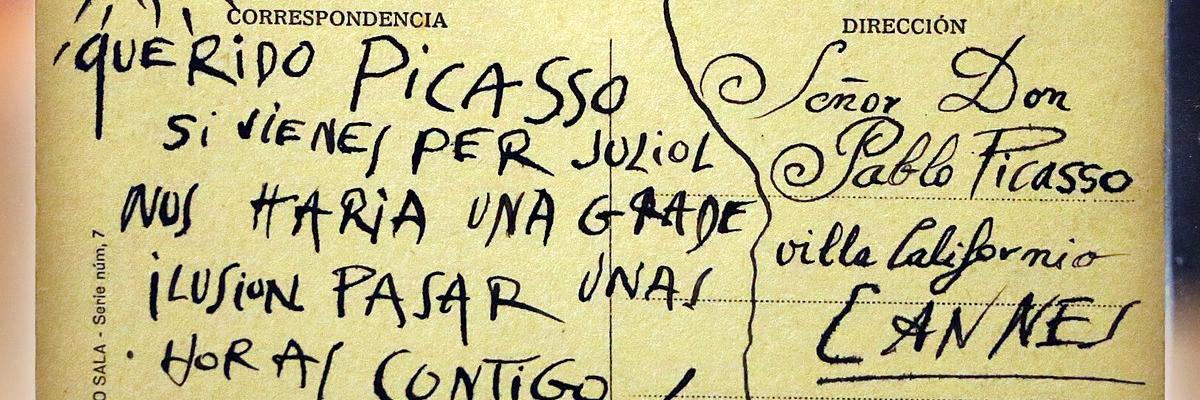 CORRESPONDENCIA
QUERIDO PICASSO
SI VIENES PER JULIOL
NOS HARIA UNA GRADE
ILUSION PASAR UNAS
HORAS CONTIGO
DIRECCIÓN
Señor Don
Pablo Picasso
villa California
CANNES
O SALA - Serie núm, 7